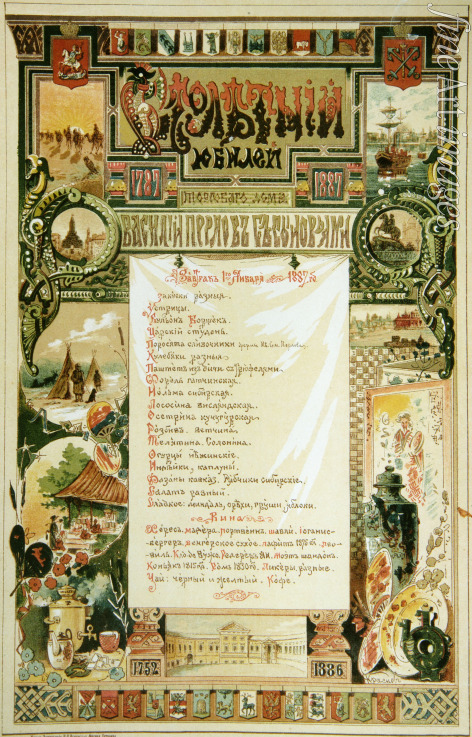 Столѣтній
юбилей
1787
1887
торговаго дома
Василій Перловъ съ сыновьями
Завтракъ 1го Января 1887 г.
Закуски разныя.
Устрицы.
Бульонъ. Борщокъ.
Царскій студень.
Поросята сливочники
Кулебяки разныя
Паштетъ изъ дичи съ трюфелями.
Форель гатчинская.
Нельма сибирская.
Лососина финляндская.
Осетрина
Розбивъ. Ветчина.
Телятина. Солонина.
Огурцы нѣжинскіе.
Индѣйки, каплуны.
Фазаны кавказ. Рябчики сибирскіе.
Салатъ разный.
Сладкое: миндаль, орѣхи, груши, яблоки.
Вина
Хересъ, мадера, портвейнъ, шабли, іоганис-
бергеръ, венгерское сухое, лафитъ
Кло де Вужо, Редереръ
Коньякъ Ромъ Ликеры разные.
Чай: черный и желтый. Кофе.
1752
1886
fine Art Images